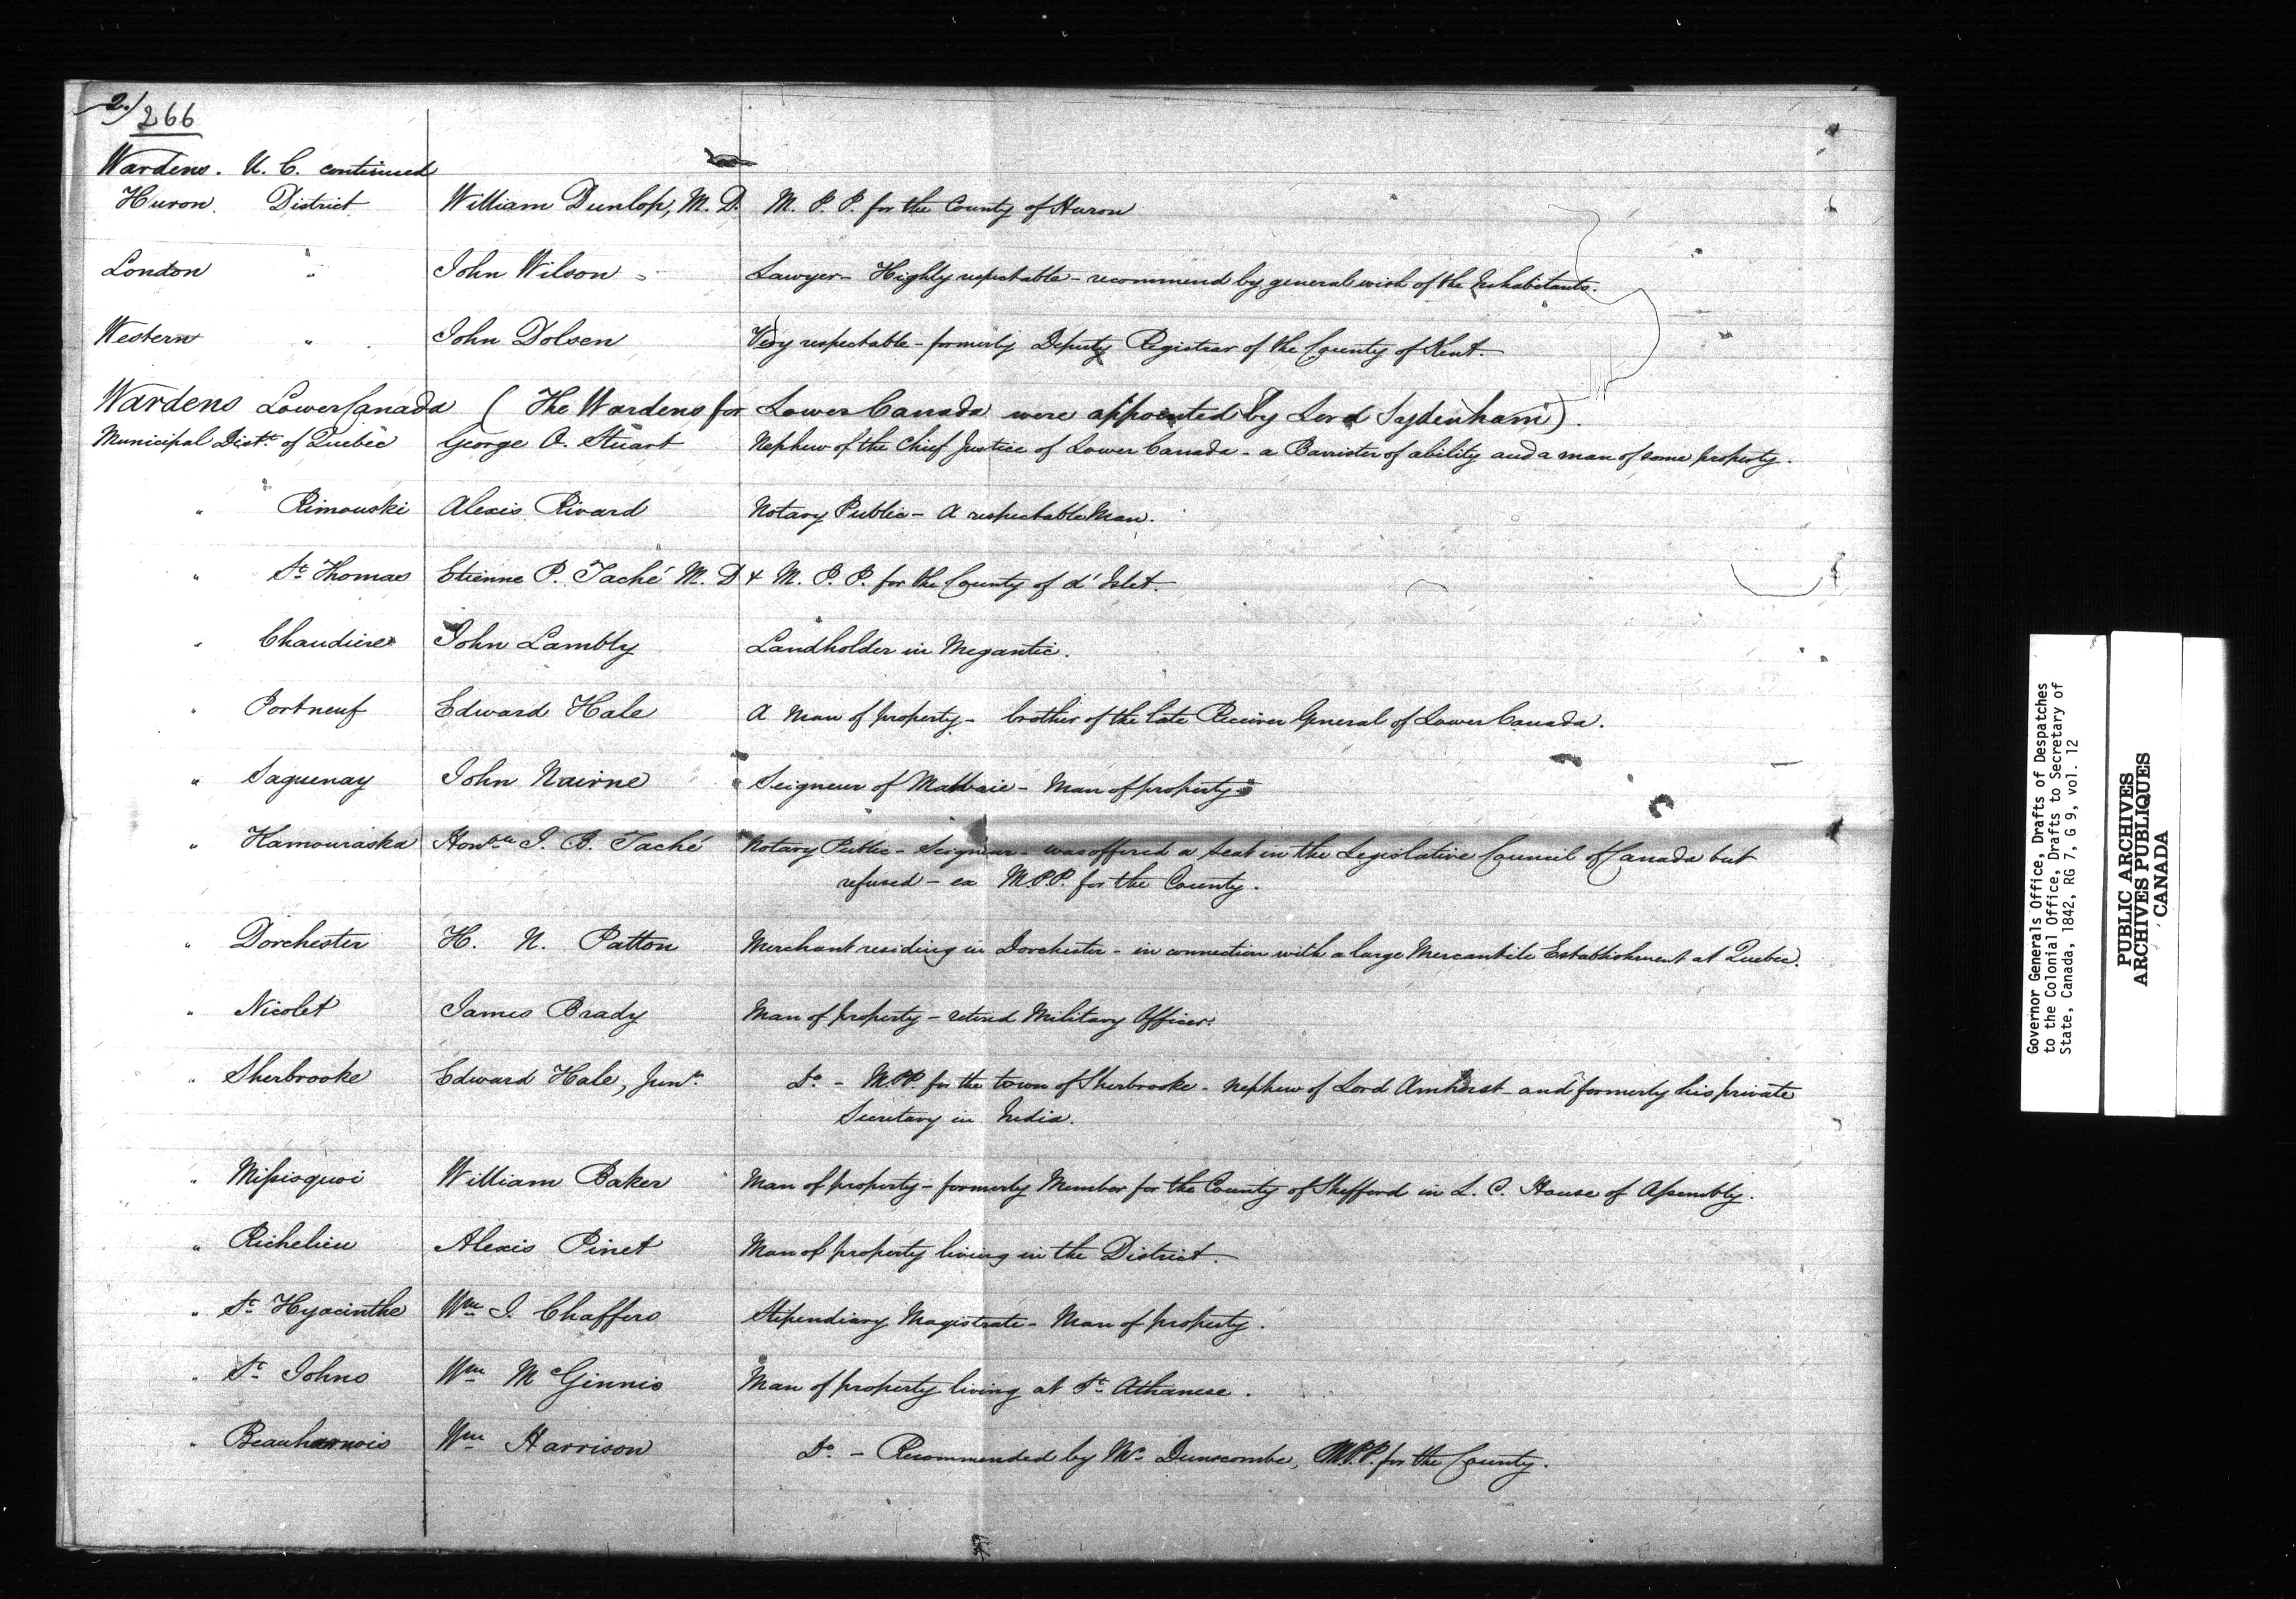 2./
266
Wardens. U. C. continued
Huron. District William Dunlop, M. D. M. P. P. for the County of Huron
London " John Wilson - Lawyer - Highly respectable - recommend by general wish of the Inhabitants.
Western " John Dolsen Very respectable - formerly Deputy Registrar of the County of Kent.
Wardens Lower Canada ( The Wardens for Lower Canada were appointed by Lord Sydenham ).
Municipal Distt. of Quebec George O. Stuart Nephew of the Chief Justice of Lower Canada - a Barrister of ability and a man of some property.
" Rimouski Alexis Rivard Notary Public - A respectable Man.
" St. Thomas Etienne P. Taché M. D & M. P. P. for the County of d'Islet.
" Chaudiere John Lambly Landholder in Megantic.
" Portneuf Edward Hale A Man of property - brother of the late Receiver General of Lower Canada.
" Saguenay John Nairne Seigneur of Malbaie - Man of property.
" Kamouraska Honble. J. B. Taché Notary Public - Seigneur - was offered a seat in the Legislative Council of Canada but
refused - ex M.P.P. for the County.
" Dorchester H. N. Patton Merchant residing in Dorchester - in connection with a large Mercantile Establishment at Quebec.
" Nicolet James Brady Man of property - retired Military Officer.
" Sherbrooke Edward Hale, Junr. Do. - M.P.P. for the town of Sherbrooke - nephew of Lord Amherst - and formerly his private
Secretary in India.
" Missisquoi William Baker Man of property - formerly Member for the County of Shefford in L. C. House of Assembly.
" Richelieu Alexis Pinet Man of property living in the District.
" St. Hyacinthe Wm. J. Chaffers Stipendiary Magistrate - Man of property.
" St. Johns Wm. McGinnis Man of property living at St. Athanese.
" Beauharnois Wm. Harrison Do. - Recommended by Mr. Dunscombe, M.P.P. for the County.
Governor Generals Office, Drafts of Despatches
to the Colonial Office, Drafts to Secretary of
State, Canada, 1842, RG 7, G 9, vol. 12
PUBLIC ARCHIVES
ARCHIVES PUBLIQUES
CANADA